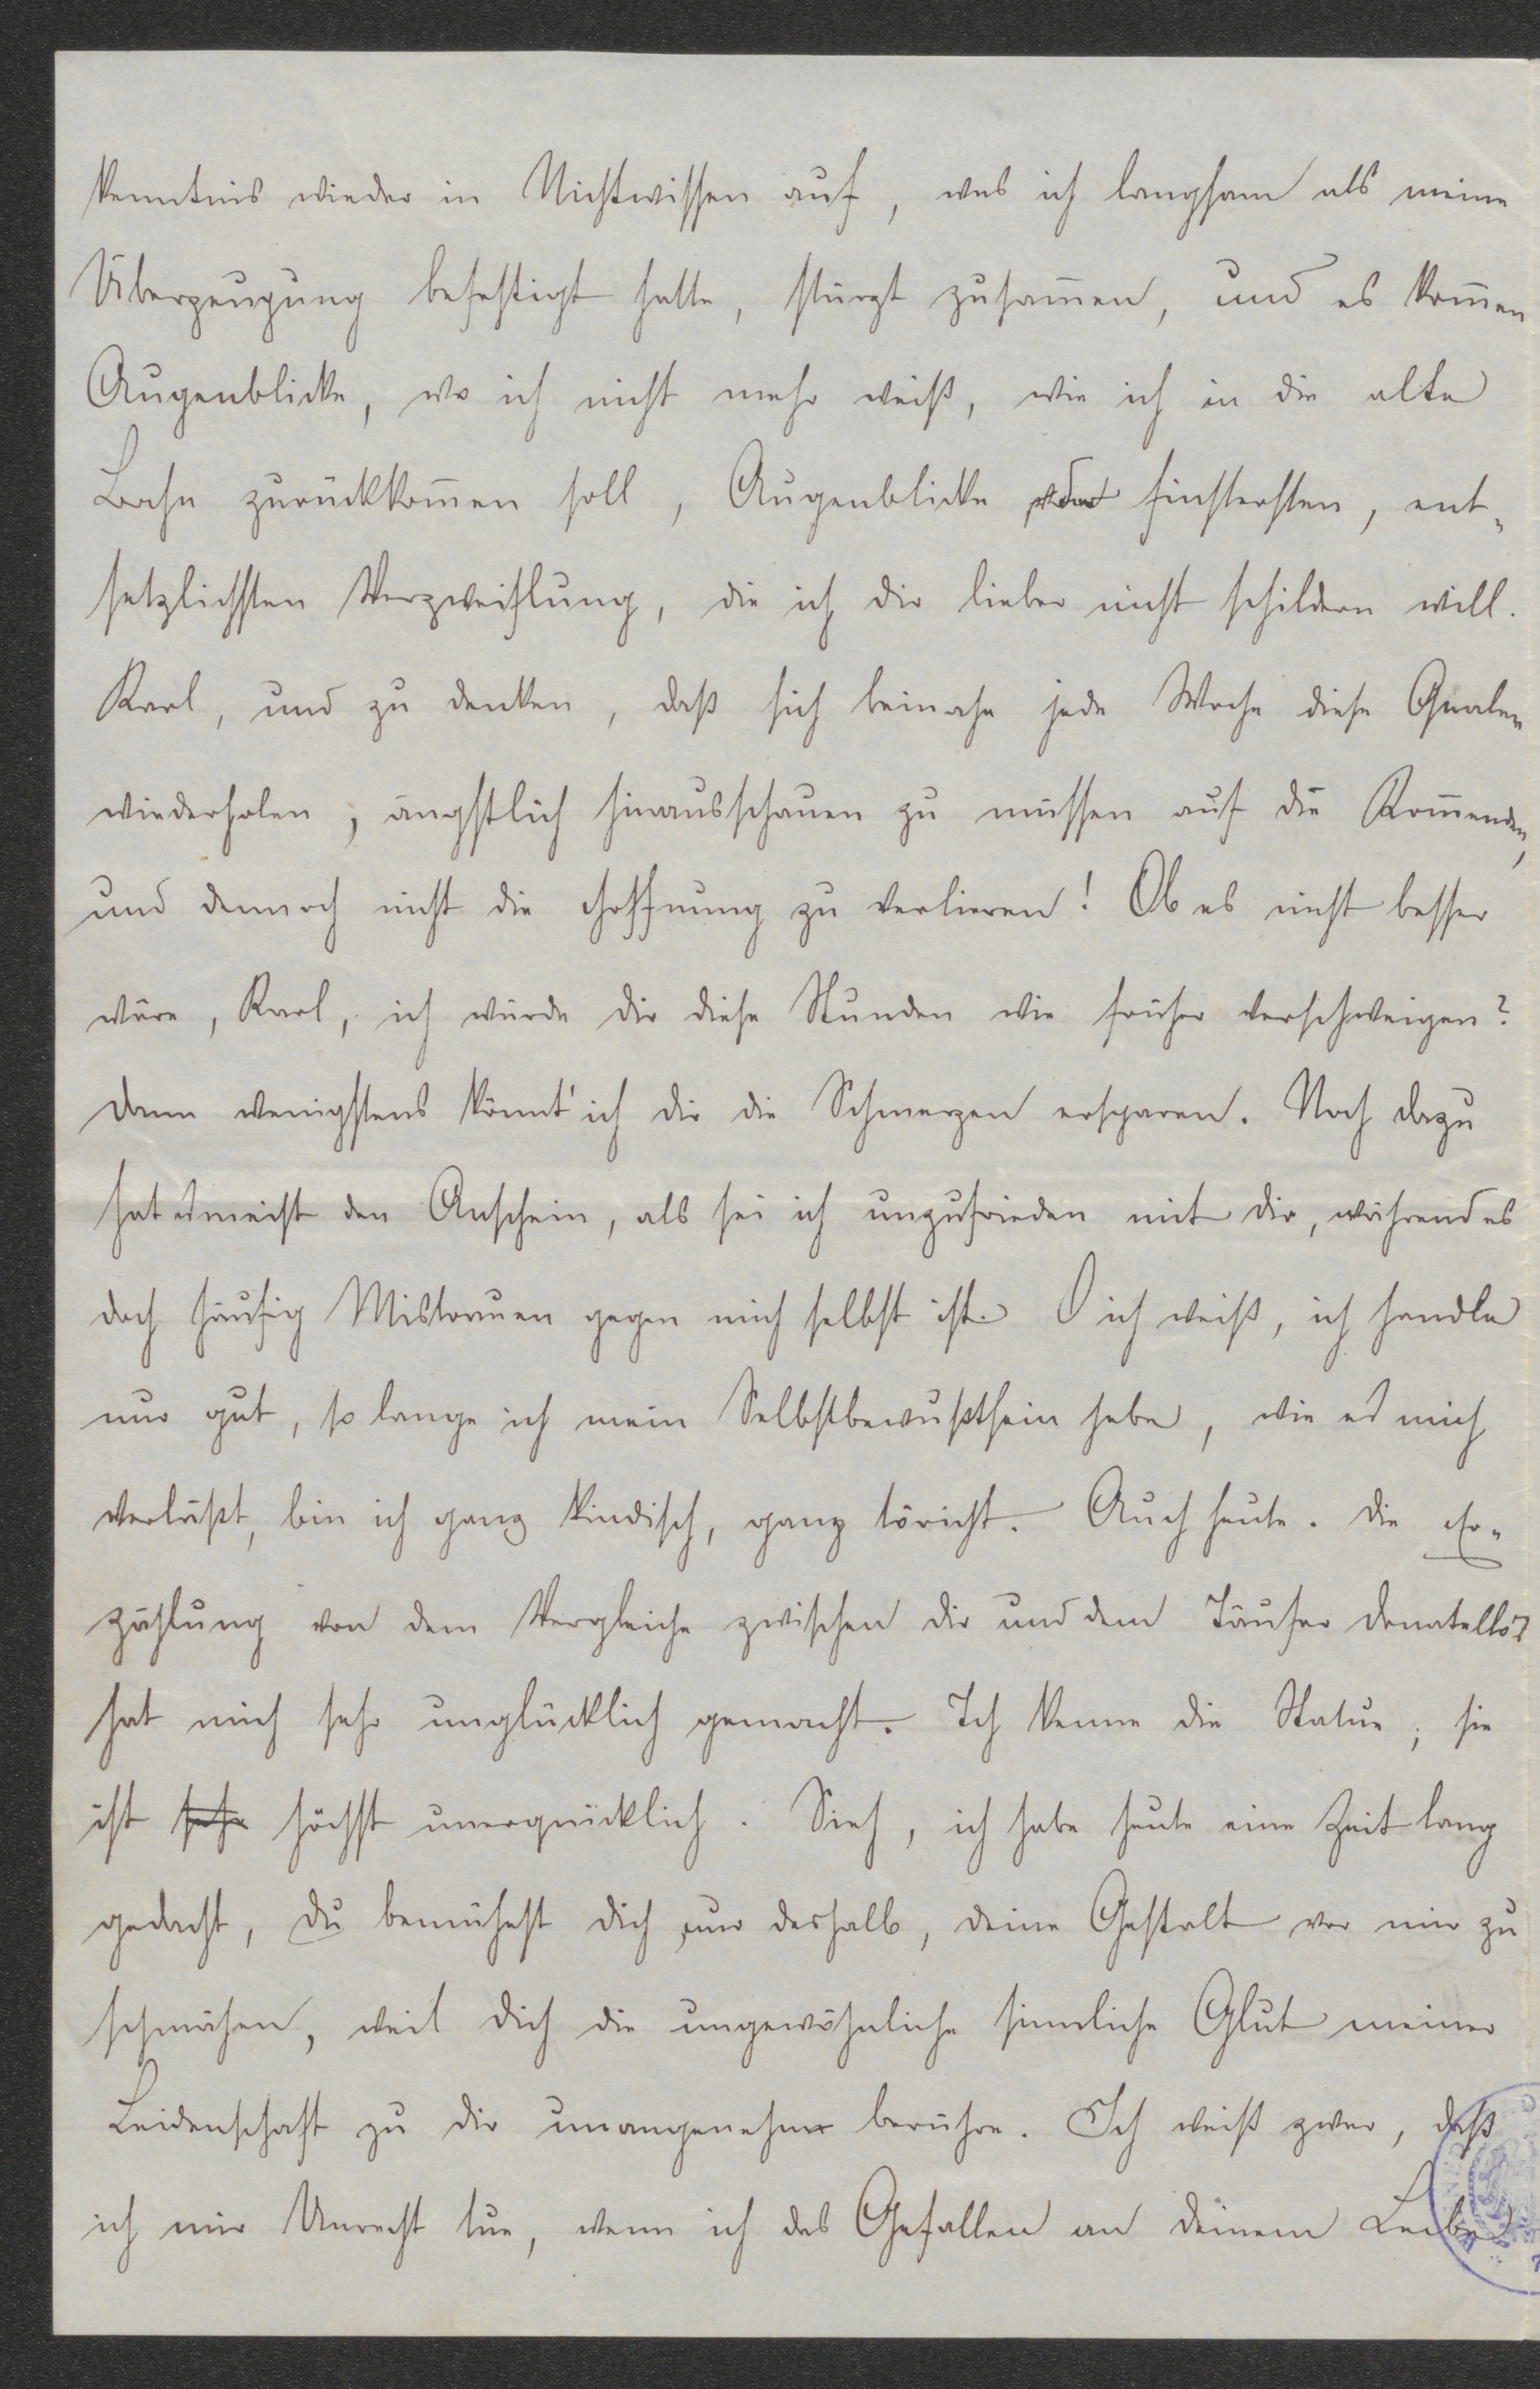 kenntnis wieder in Nichtwissen auf, was ich langsam als meine
Überzeugung befestigt hatte, stürzt zusam̄en, und es kom̄en
Augenblicke, wo ich nicht mehr weiß, wie ich in die alte
Bahn zurückkom̄en soll, Augenblicke der finstersten, ent„
setzlichsten Verzweiflung, die ich dir lieber nicht schildern will.
Karl, und zu denken, daß sich beinahe jede Woche diese Qualen
wiederholen, ängstlich hinausschauen zu müssen auf die Kom̄enden,
und dennoch nicht die Hoffnung zu verlieren! Ob es nicht besser
wäre, Karl, ich würde dir diese Stunden wie früher verschweigen?
Dann wenigstens könnt' ich dir die Schmerzen ersparen. Noch dazu
hat es meist den Anschein, als sei ich unzufrieden mit dir, während es
doch häufig Mistrauen gegen mich selbst ist. O ich weiß, ich handle
nur gut, so lange ich mein Selbstbewußtsein habe, wie es mich
verläßt, bin ich ganz kindisch, ganz töricht. Auch heute. Die Er„
zählung von dem Vergleiche zwischen dir und dem Täufer Donatello's
hat mich sehr unglücklich gemacht. Ich kenne die Statue; sie
ist sehr höchst unerquicklich. Sieh, ich habe heute eine Zeit lang
gedacht, du bemühest dich nur deshalb, deine Gestalt vor mir zu
schmähen, weil dich die ungewöhnliche sinnliche Glut meiner
Leidenschaft zu dir unangenehm berühre. Ich weiß zwar, daß
ich mir Unrecht tue, wenn ich das Gefallen an deinem Leibe